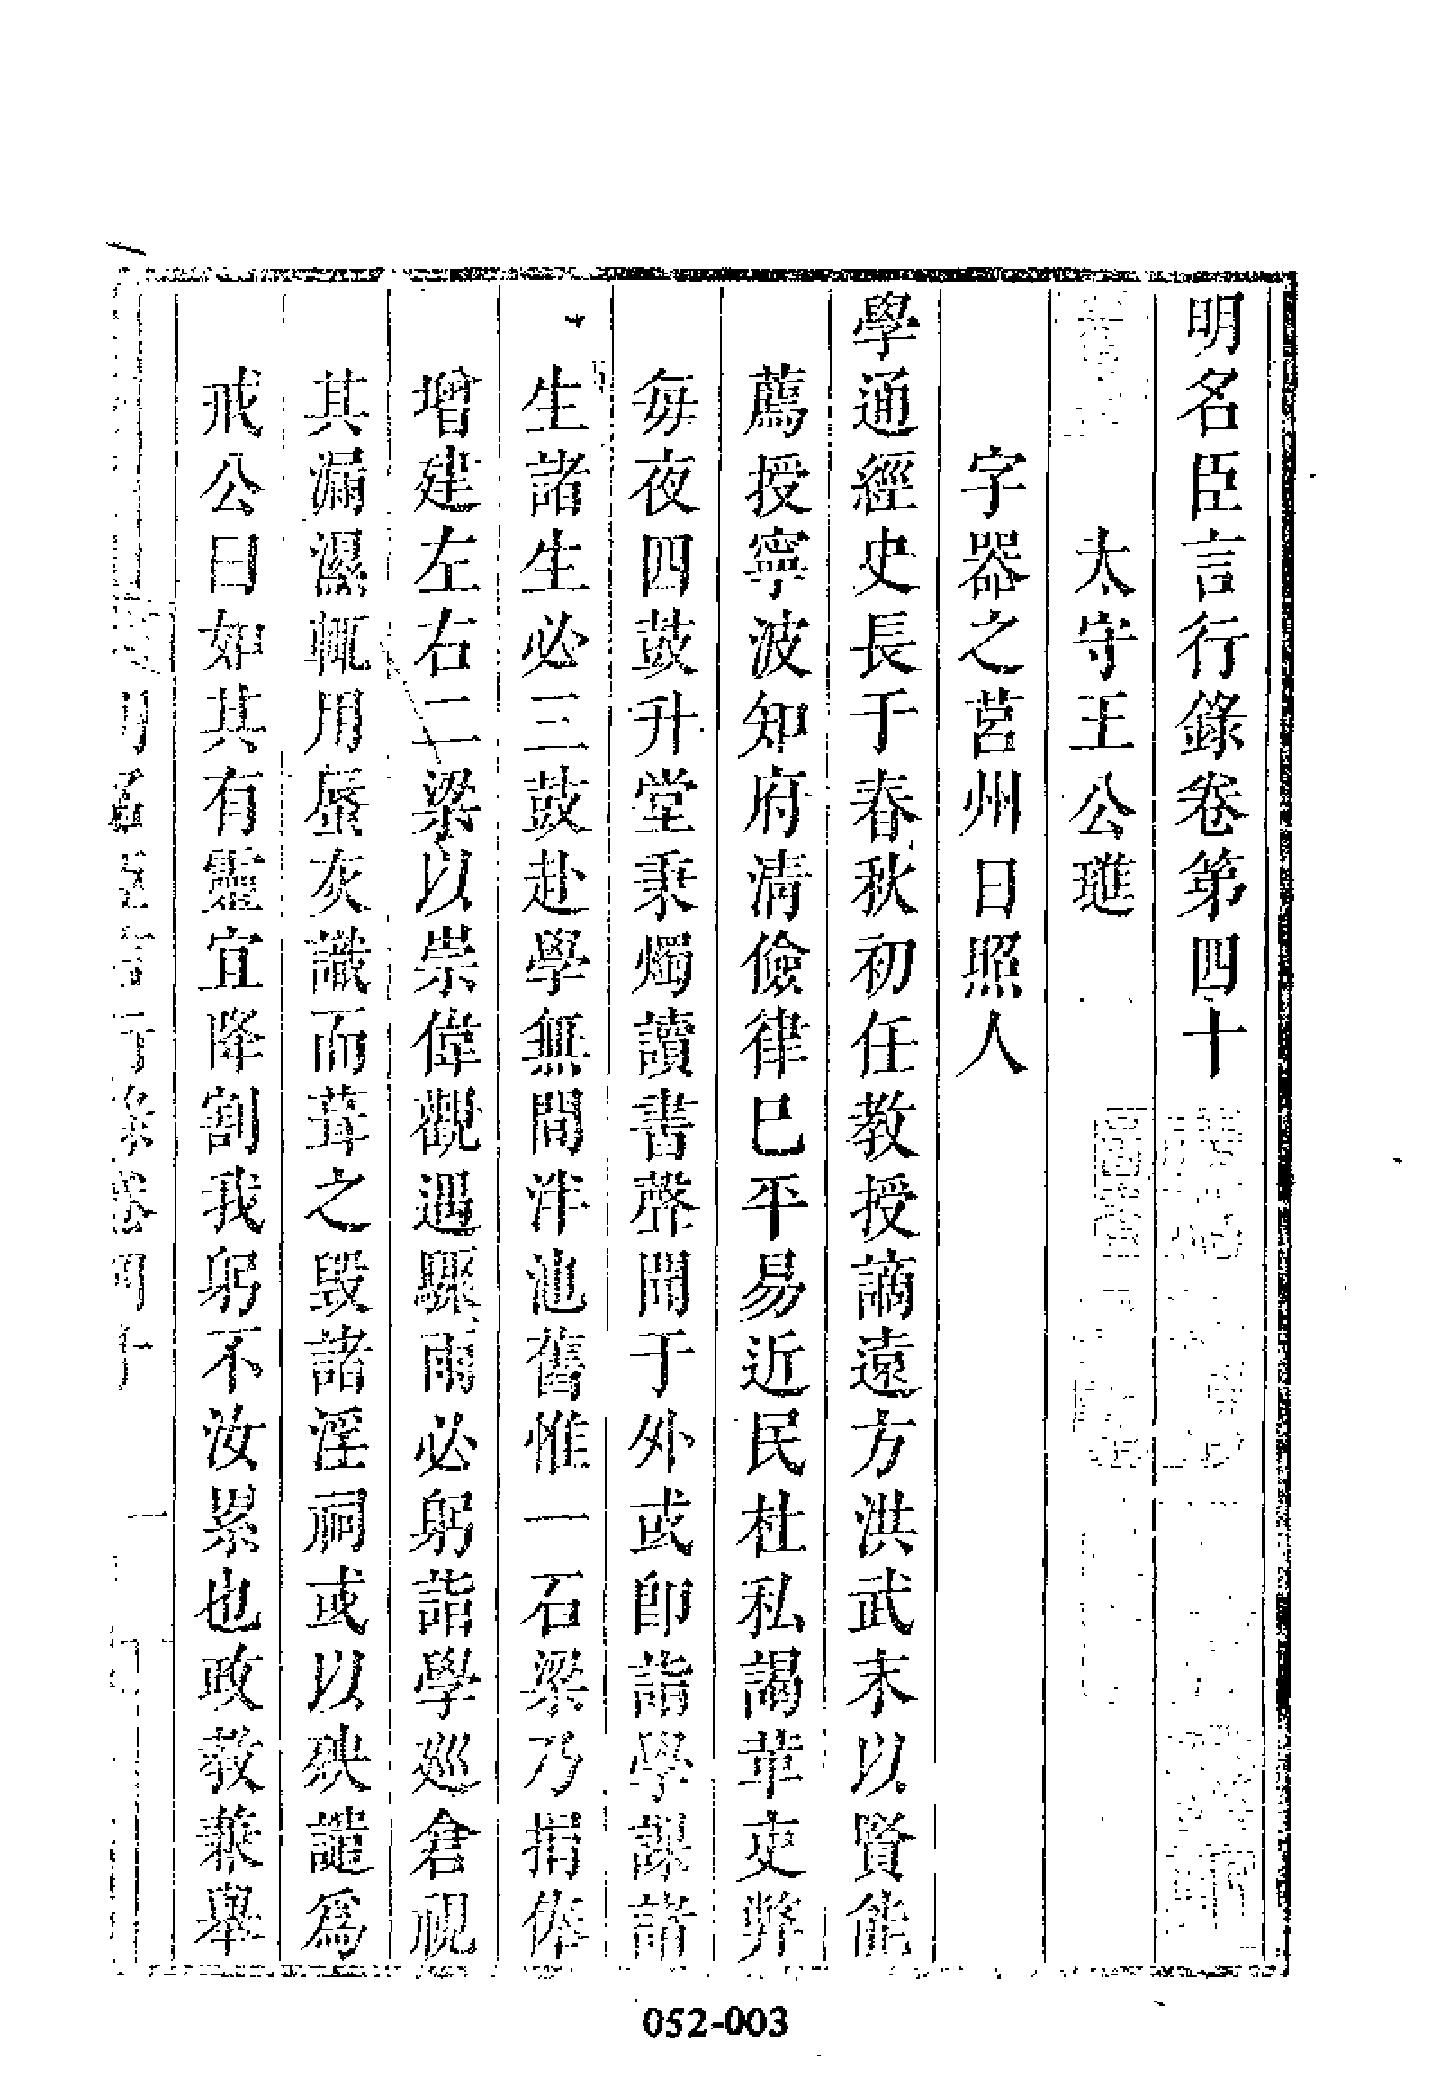 明名臣言行錄卷第四十
太守王公璡
字器之莒州日照人
學通經史長于春秋初任教授謫遠方洪武末以賢能
薦授寧波知府清儉律已平易近民杜私謁革吏弊
每夜四鼓升堂秉燭讀書聲聞于外或卽詣學課諸
生諸生必三鼓赴學無間泮池舊惟一石梁乃捐俸
增建左右二梁以崇偉觀遇驟雨必躬詣學廵倉視
其漏濕輒用蜃灰識而葺之毀諸淫祠或以殃譴爲
戒公曰如其有靈宜降割我躬不汝累也政敎蕪舉
明名臣言行錄卷四十
一
052-003